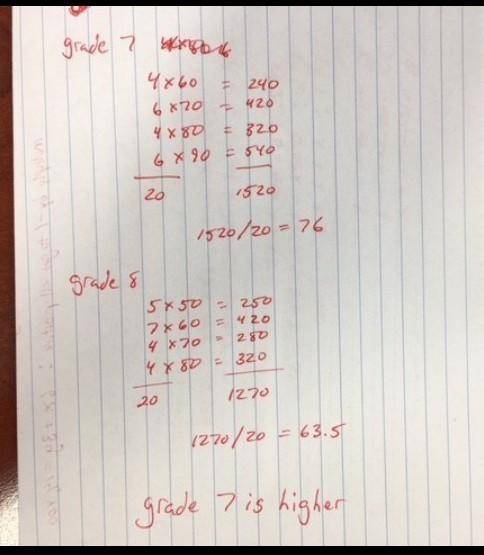 grade 7
4 x 60 = 240
6 x 70 = 420
4 x 80 = 320
6 x 90 = 540
20 1520
1520/20 = 76
grade 8
5 x 50 = 250
7 x 60 = 420
4 x 70 = 280
4 x 80 = 320
20 1270
1270/20 = 63.5
grade 7 is higher